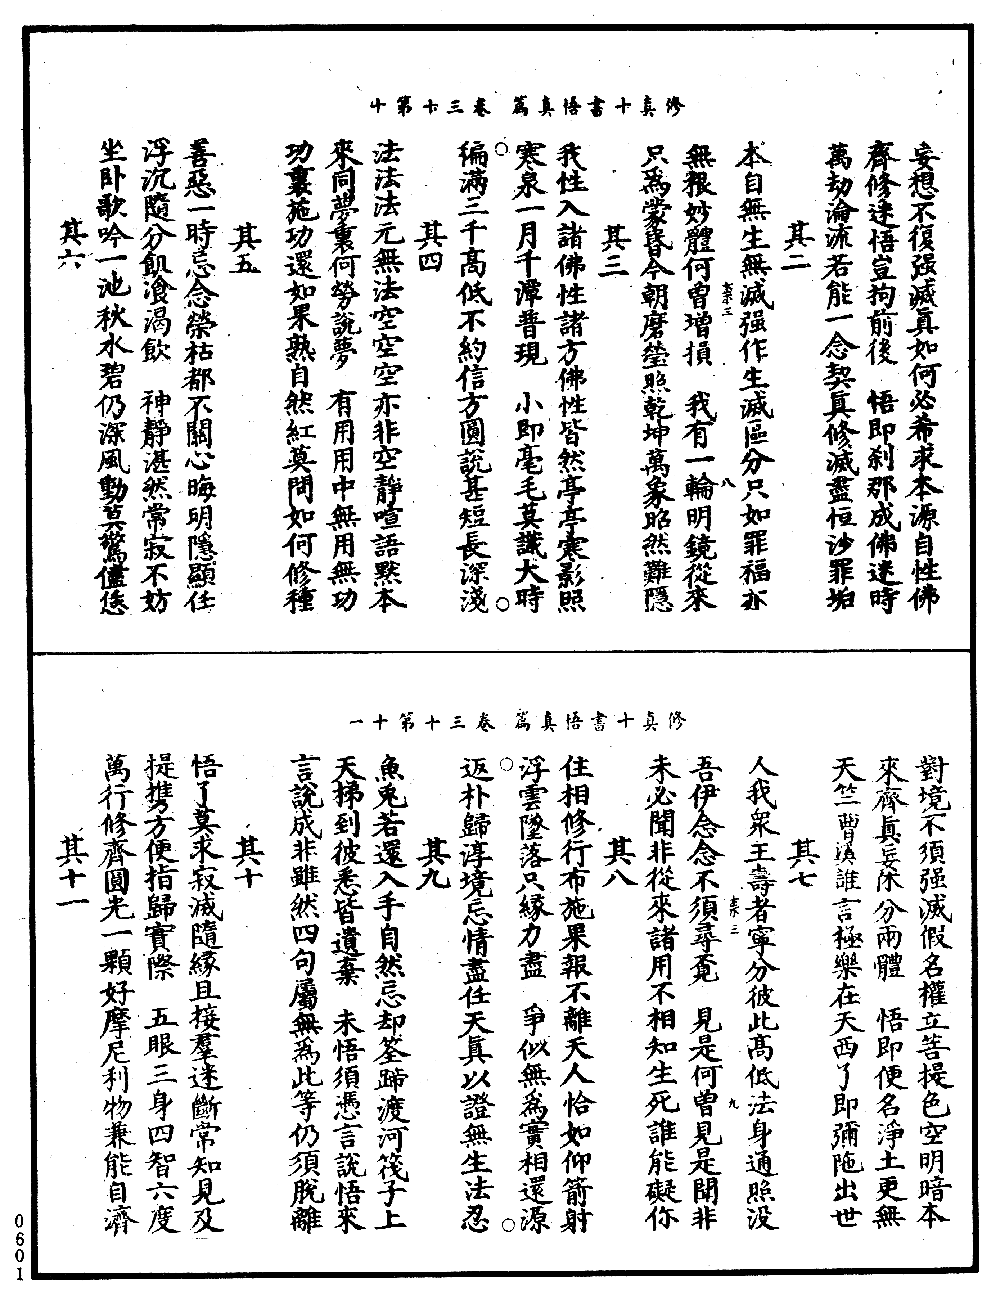 修真十書悟真篇　卷三十第十
妄想不復强滅真如何必希求本源自性佛
齊修迷悟豈拘前後　悟即刹那成佛迷時
萬劫淪流若能一念契真修滅盡恒沙罪垢
其二
本自無生無滅强作生滅區分只如罪福亦
無根妙體何曾增損　我有一輪明鏡從來
只為蒙昏今朝磨瑩照乾坤萬象昭然難隱
其三
我性入諸佛性諸方佛性皆然亭亭寒影照
寒泉一月千潭普現　小即毫毛莫識大時
徧滿三千高低不約信方圓說甚短長深淺
其四
法法法元無法空空空亦非空靜喧語默本
來同夢裏何勞說夢　有用用中無用無功
功裏施功還如果熟自然紅莫問如何修種
其五
善惡一時忘念榮枯都不關心晦明隱顯任
浮沉隨分飢飡渴飲　神靜湛然常寂不妨
坐卧歌吟一池秋水碧仍深風動莫驚儘恁
其六
修真十書悟真篇　卷三十第十一
對境不須强滅假名權立菩提色空明暗本
來齊真妄休分兩體　悟即便名淨土更無
天竺曹溪誰言極樂在天西了即彌陁出世
其七
人我衆王壽者寧分彼此高低法身通照没
吾伊念念不須尋覔　見是何曾見是聞非
未必聞非從來諸用不相知生死誰能礙你
其八
住相修行布施果報不離天人恰如仰箭射
浮雲墜落只緣力盡　爭似無為實相還源
返朴歸淳境忘情盡任天真以證無生法忍
其九
魚兎若還入手自然忘却筌蹄渡河筏子上
天梯到彼悉皆遺棄　未悟須憑言說悟來
言說成非雖然四句屬無為此等仍須脫離
其十
悟了莫求寂滅隨緣且接羣迷斷常知見及
提攜方便指歸實際　五眼三身四智六度
萬行修齊圓光一顆好摩尼利物兼能自濟
其十一
0601